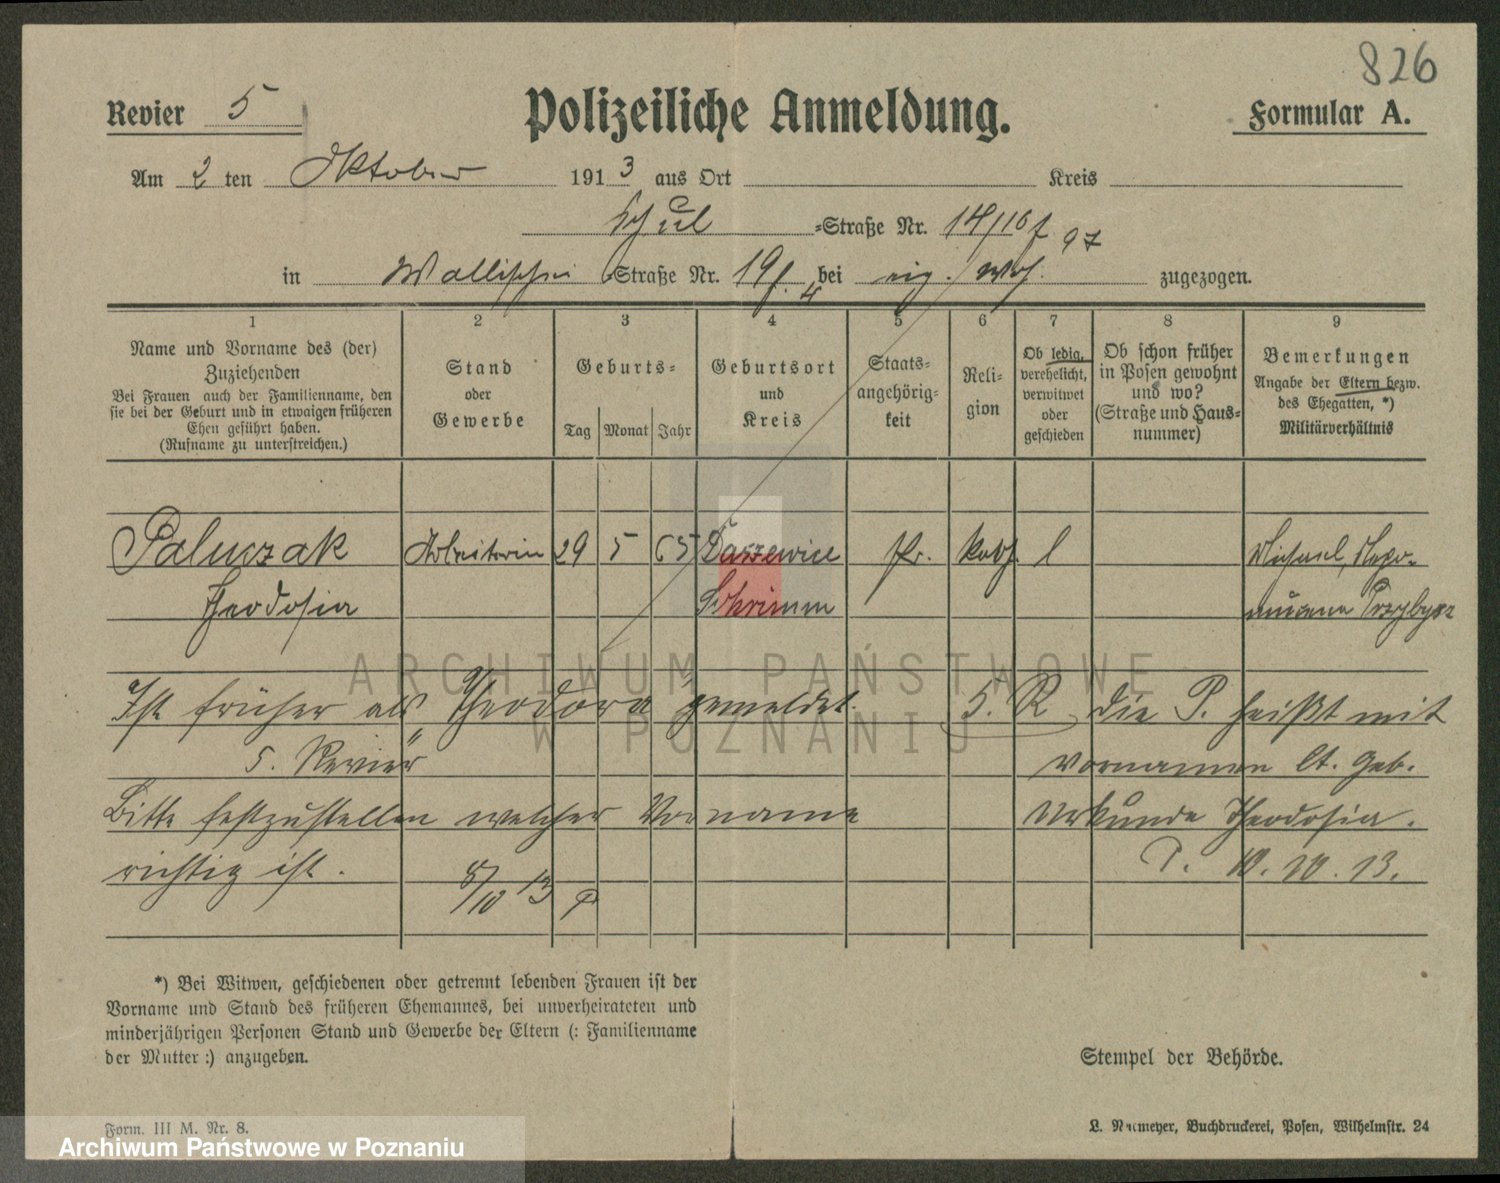 826
Revier 5
Polizeiliche Anmeldung.
Formular A.
Am 2 ten Oktober 1913 aus Ort Kreis
Schul -Straße Nr. 14/16
in Wallischei -Straße Nr. 19 bei eig. Woh. zugezogen.
1 2 3 4 5 6 7 8 9
Name und Vorname des (der)
Zuziehenden
Bei Frauen auch der Familienname, den
sie bei der Geburt und in etwaigen früheren
Ehen geführt haben.
(Rufname zu unterstreichen.)
Stand
oder
Gewerbe
Geburts-
Tag Monat Jahr
Geburtsort
und
Kreis
Staats-
angehörig-
keit
Reli-
gion
Ob ledig,
verehelicht,
verwitwet
oder
geschieden
Ob schon früher
in Posen gewohnt
und wo?
(Straße und Haus-
nummer)
Bemerkungen
Angabe der Eltern bezw.
des Ehegatten, *)
Militärverhältnis
Paluszak Arbeiterin 29 5 65 Daszewice pr. kath. l Michael, Nepo-
Theodosia Schrimm mucena Przybysz
Ist früher als "Theodora" gemeldet. 5. R Die P. heißt mit
5. Revier Vornamen lt. Geb.
Bitte festzustellen welcher Vorname Urkunde Theodosia.
richtig ist. 10.10.13.
8/10 13
*) Bei Witwen, geschiedenen oder getrennt lebenden Frauen ist der
Vorname und Stand des früheren Ehemannes, bei unverheirateten und
minderjährigen Personen Stand und Gewerbe der Eltern (: Familienname
der Mutter :) anzugeben.
Stempel der Behörde.
Form. III M. Nr. 8.
L. Neumeyer, Buchdruckerei, Posen, Wilhelmstr. 24
ARCHIWUM PAŃSTWOWE
W POZNANIU
Archiwum Państwowe w Poznaniu